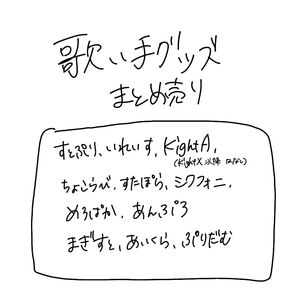 歌い手グッズ
まとめ売り
すとぷり、いれいす、KnightA、
(KnightX以降はない)
ちょこらび、すたぽら、シクフォニ、
めろぱか、あんぷろ
まぜすと、あいくら、ぷりだむ